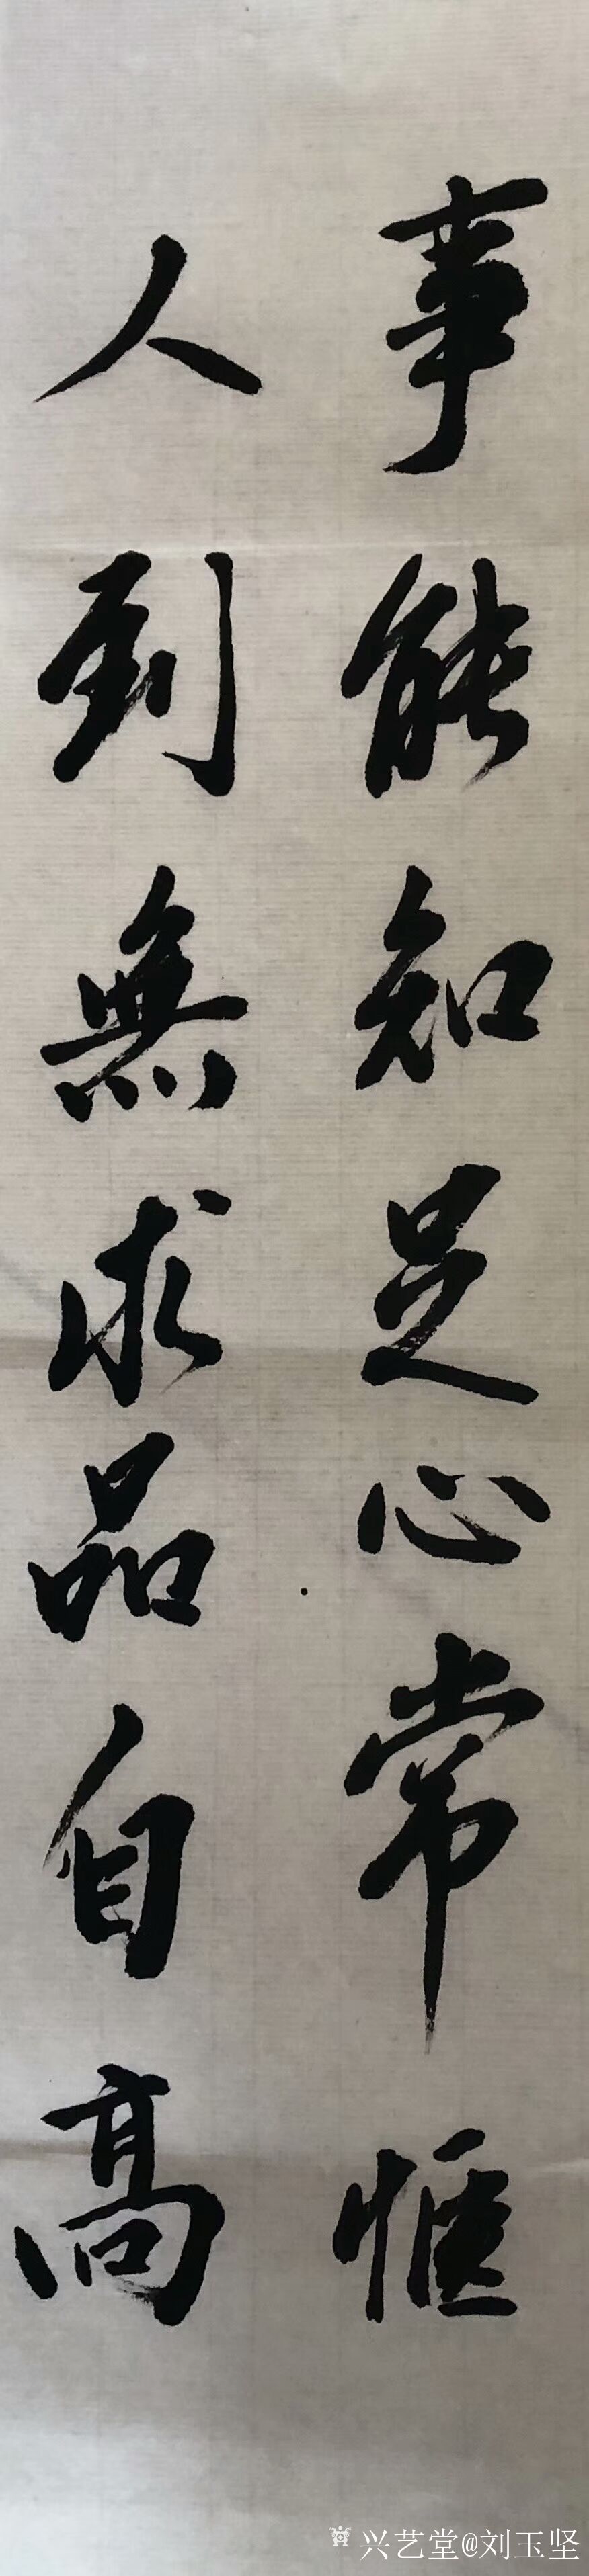 事能知足心常惬
人到無求品自高
兴艺堂@刘玉坚